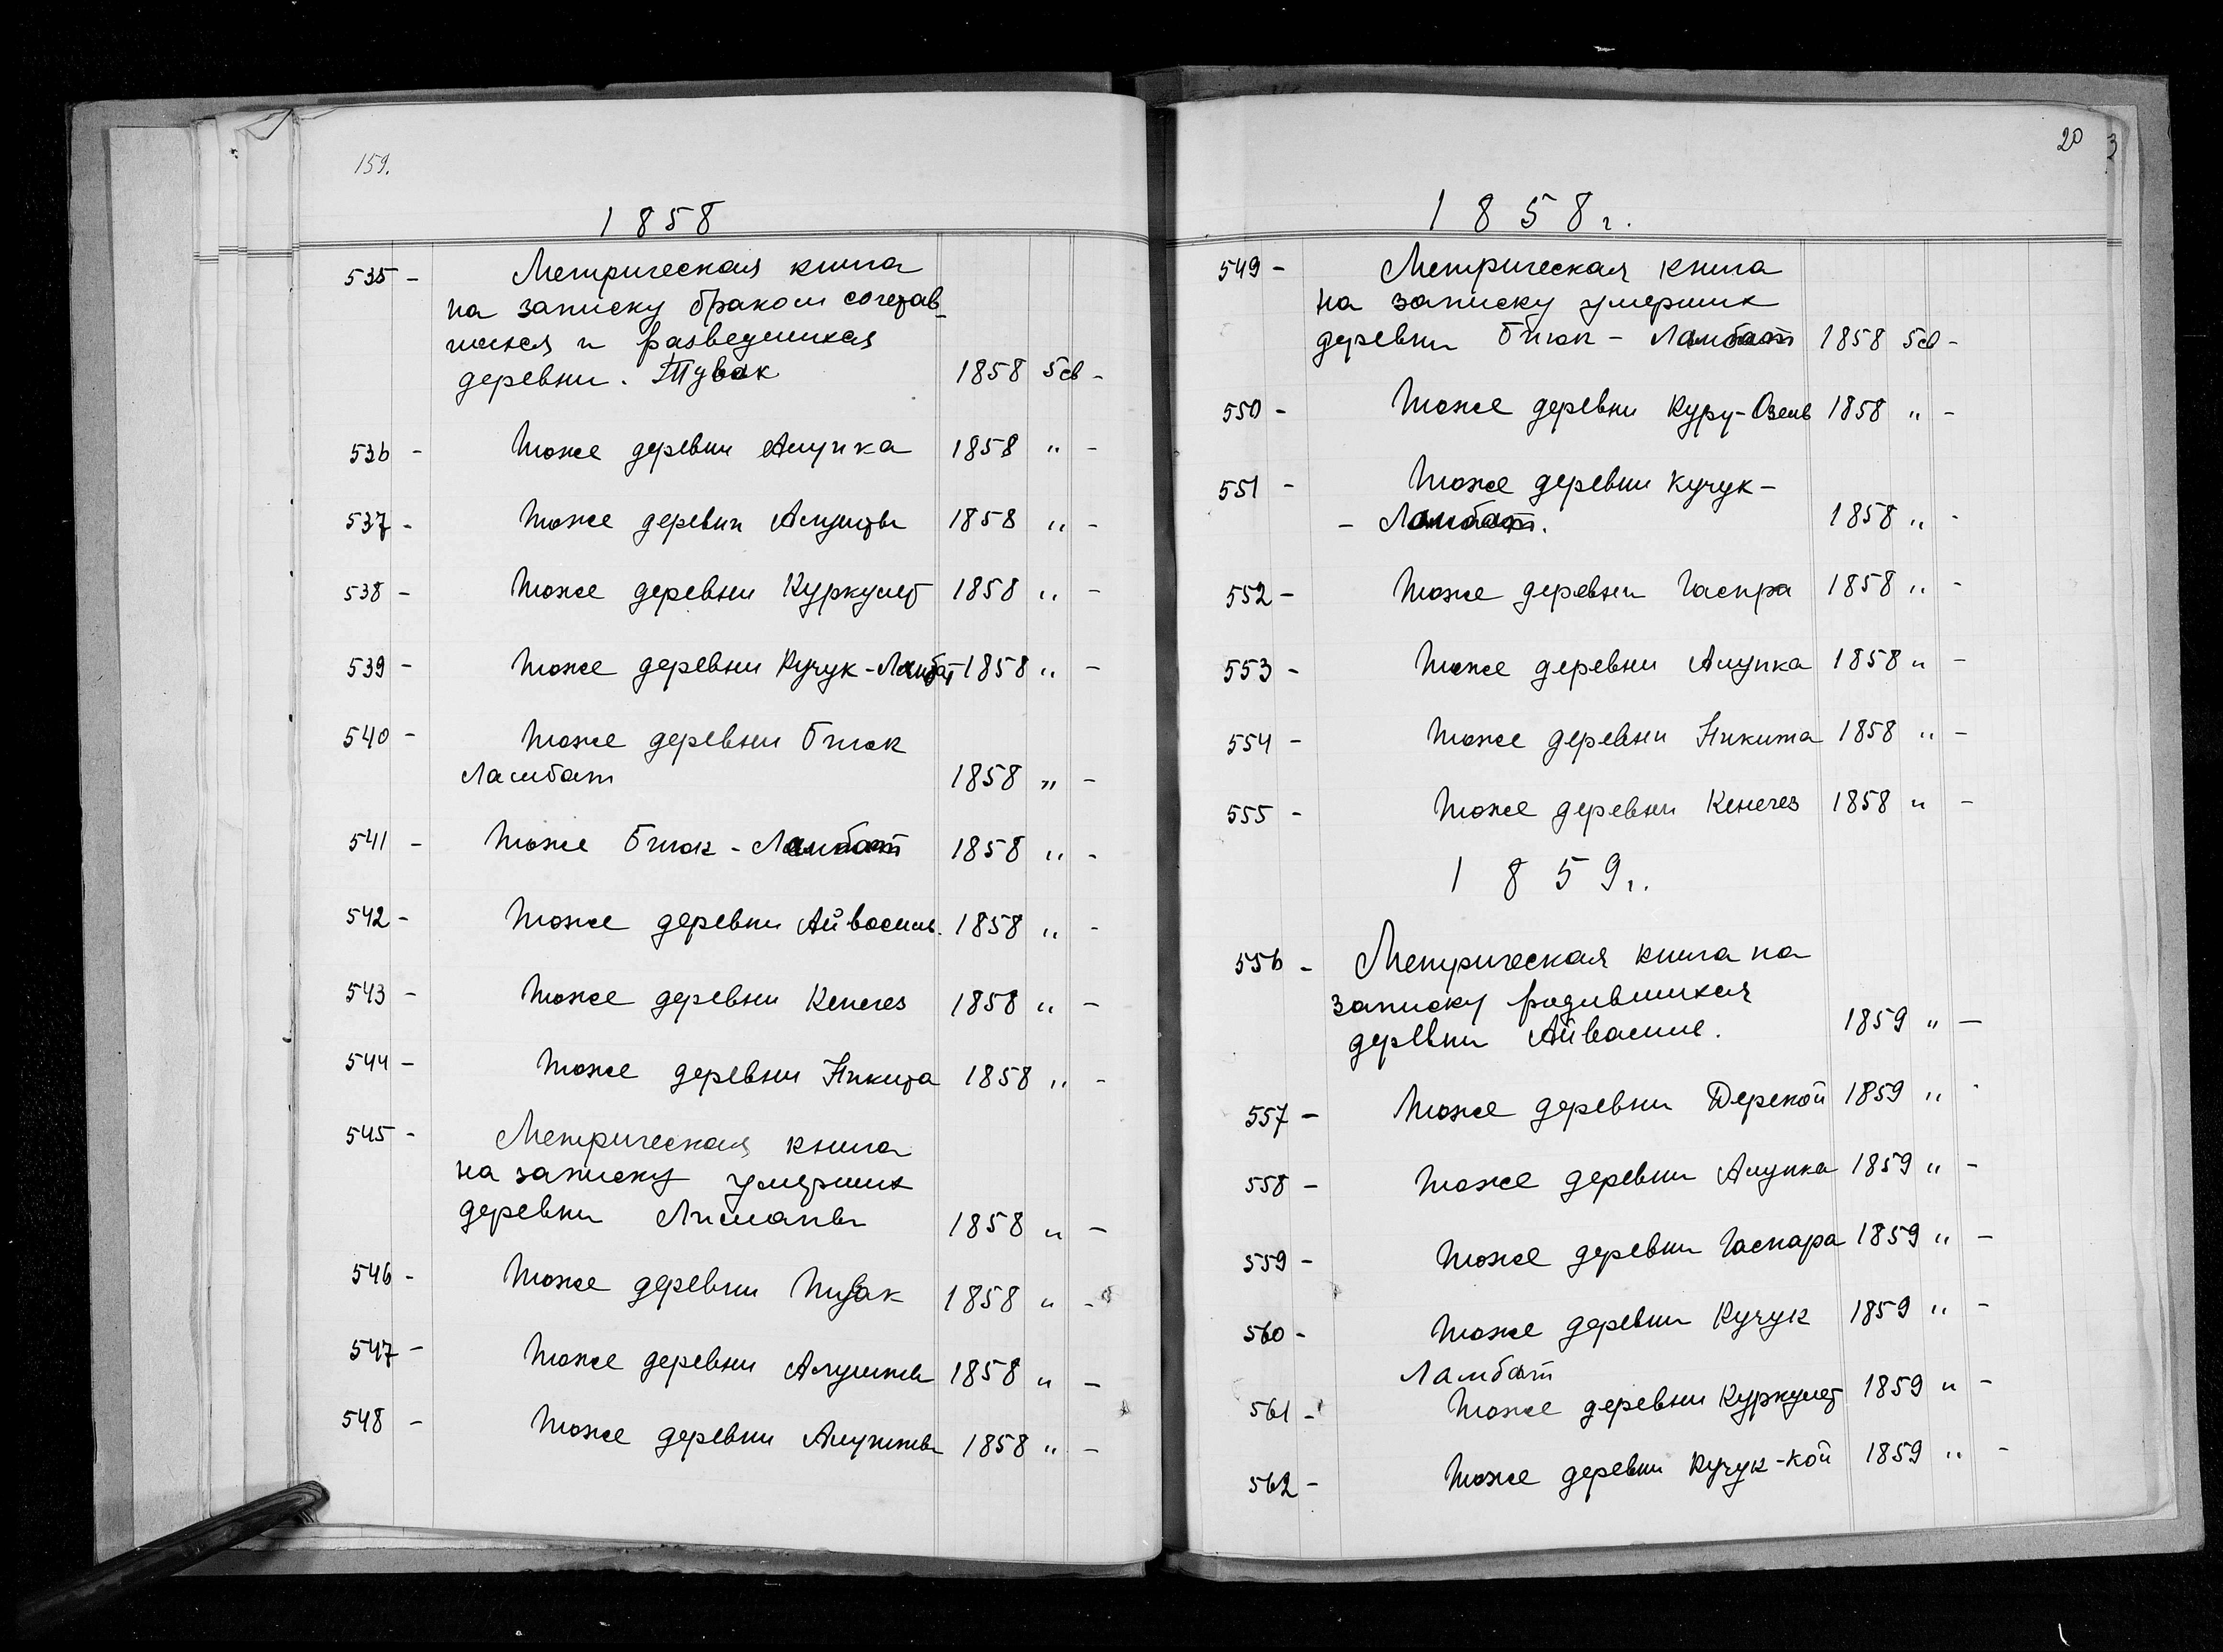 159.
1858
535 - Метрическая книга
на записку браком сочетав-
шихся и разведшихся
деревни. Тувак 1858 5св -
536 - Тоже деревни Алупка 1858 " -
537 - Тоже деревни Алушты 1858 " -
538 - Тоже деревни Куркулет 1858 " -
539 - Тоже деревни Кучук-Ламбат 1858 " -
540 - Тоже деревни Биюк
Ламбат 1858 " -
541 - Тоже Биюк-Ламбат 1858 " -
542 - Тоже деревни Айвасиль. 1858 " -
543 - Тоже деревни Кенегез 1858 " -
544 - Тоже деревни Никита 1858 " -
545 - Метрическая книга
на записку умерших
деревни 1858 " -
546 - Тоже деревни Тувак 1858 " -
547 - Тоже деревни Алушты 1858 " -
548 - Тоже деревни 1858 " -
20 3
1858г.
549 - Метрическая книга
на записку умерших
деревни Биюк-Ламбат 1858 5св -
550 - Тоже деревни Куру-Озень 1858 " -
551 - Тоже деревни Кучук-
- Ламбат. 1858 " -
552 - Тоже деревни Гаспра 1858 " -
553 - Тоже деревни Алупка 1858 " -
554 - Тоже деревни Никита 1858 " -
555 - Тоже деревни Кенегез 1858 " -
1859г.
556 - Метрическая книга на
записку родившихся
деревни Айвасиль. 1859 " -
557 - Тоже деревни Дерекой 1859 " -
558 - Тоже деревни Алупка 1859 " -
559 - Тоже деревни Гаспара 1859 " -
560 - Тоже деревни Кучук 1859 " -
Ламбат
561 - Тоже деревни Куркулет 1859 " -
562 - Тоже деревни Кучук-кой 1859 " -